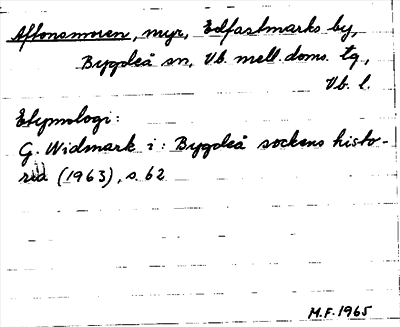 Affonsmoren, myr, Edfastmarks by,
Bygdeå sn, Vb. mell. doms. tg.,
Vb. l.
Etymologi:
G. Widmark i: Bygdeå sockens histo-
ria (1963), s. 62
M.F. 1965